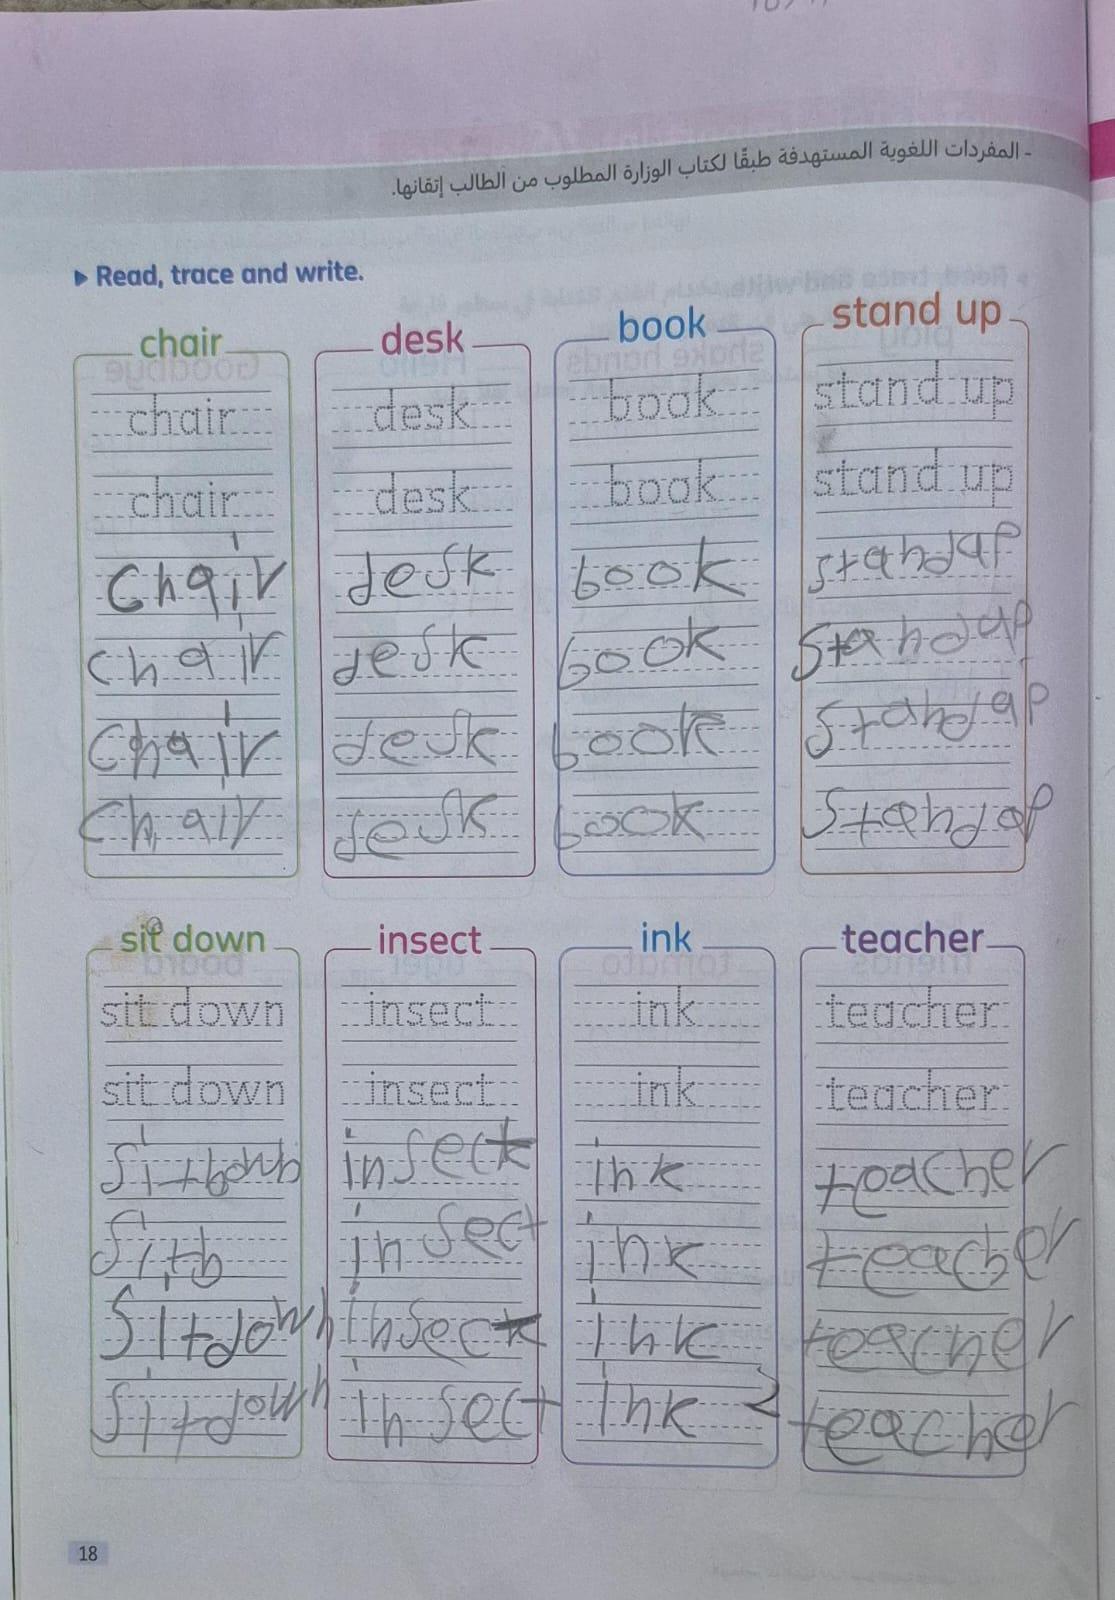 - المفردات اللغوية المستهدفة طبقًا لكتاب الوزارة المطلوب من الطالب إتقانها.
Read, trace and write.
chair desk book stand up
chair desk book stand up
chair desk book stand up
chair desk book standap
chair desk book standap
chair desk book standap
chair desk book standap
sit down insect ink teacher
sit down insect ink teacher
sit down insect ink teacher
insect ink teacher
sitb insect ink teacher
sitdown insect ink teacher
sitdown insect ink teacher
18